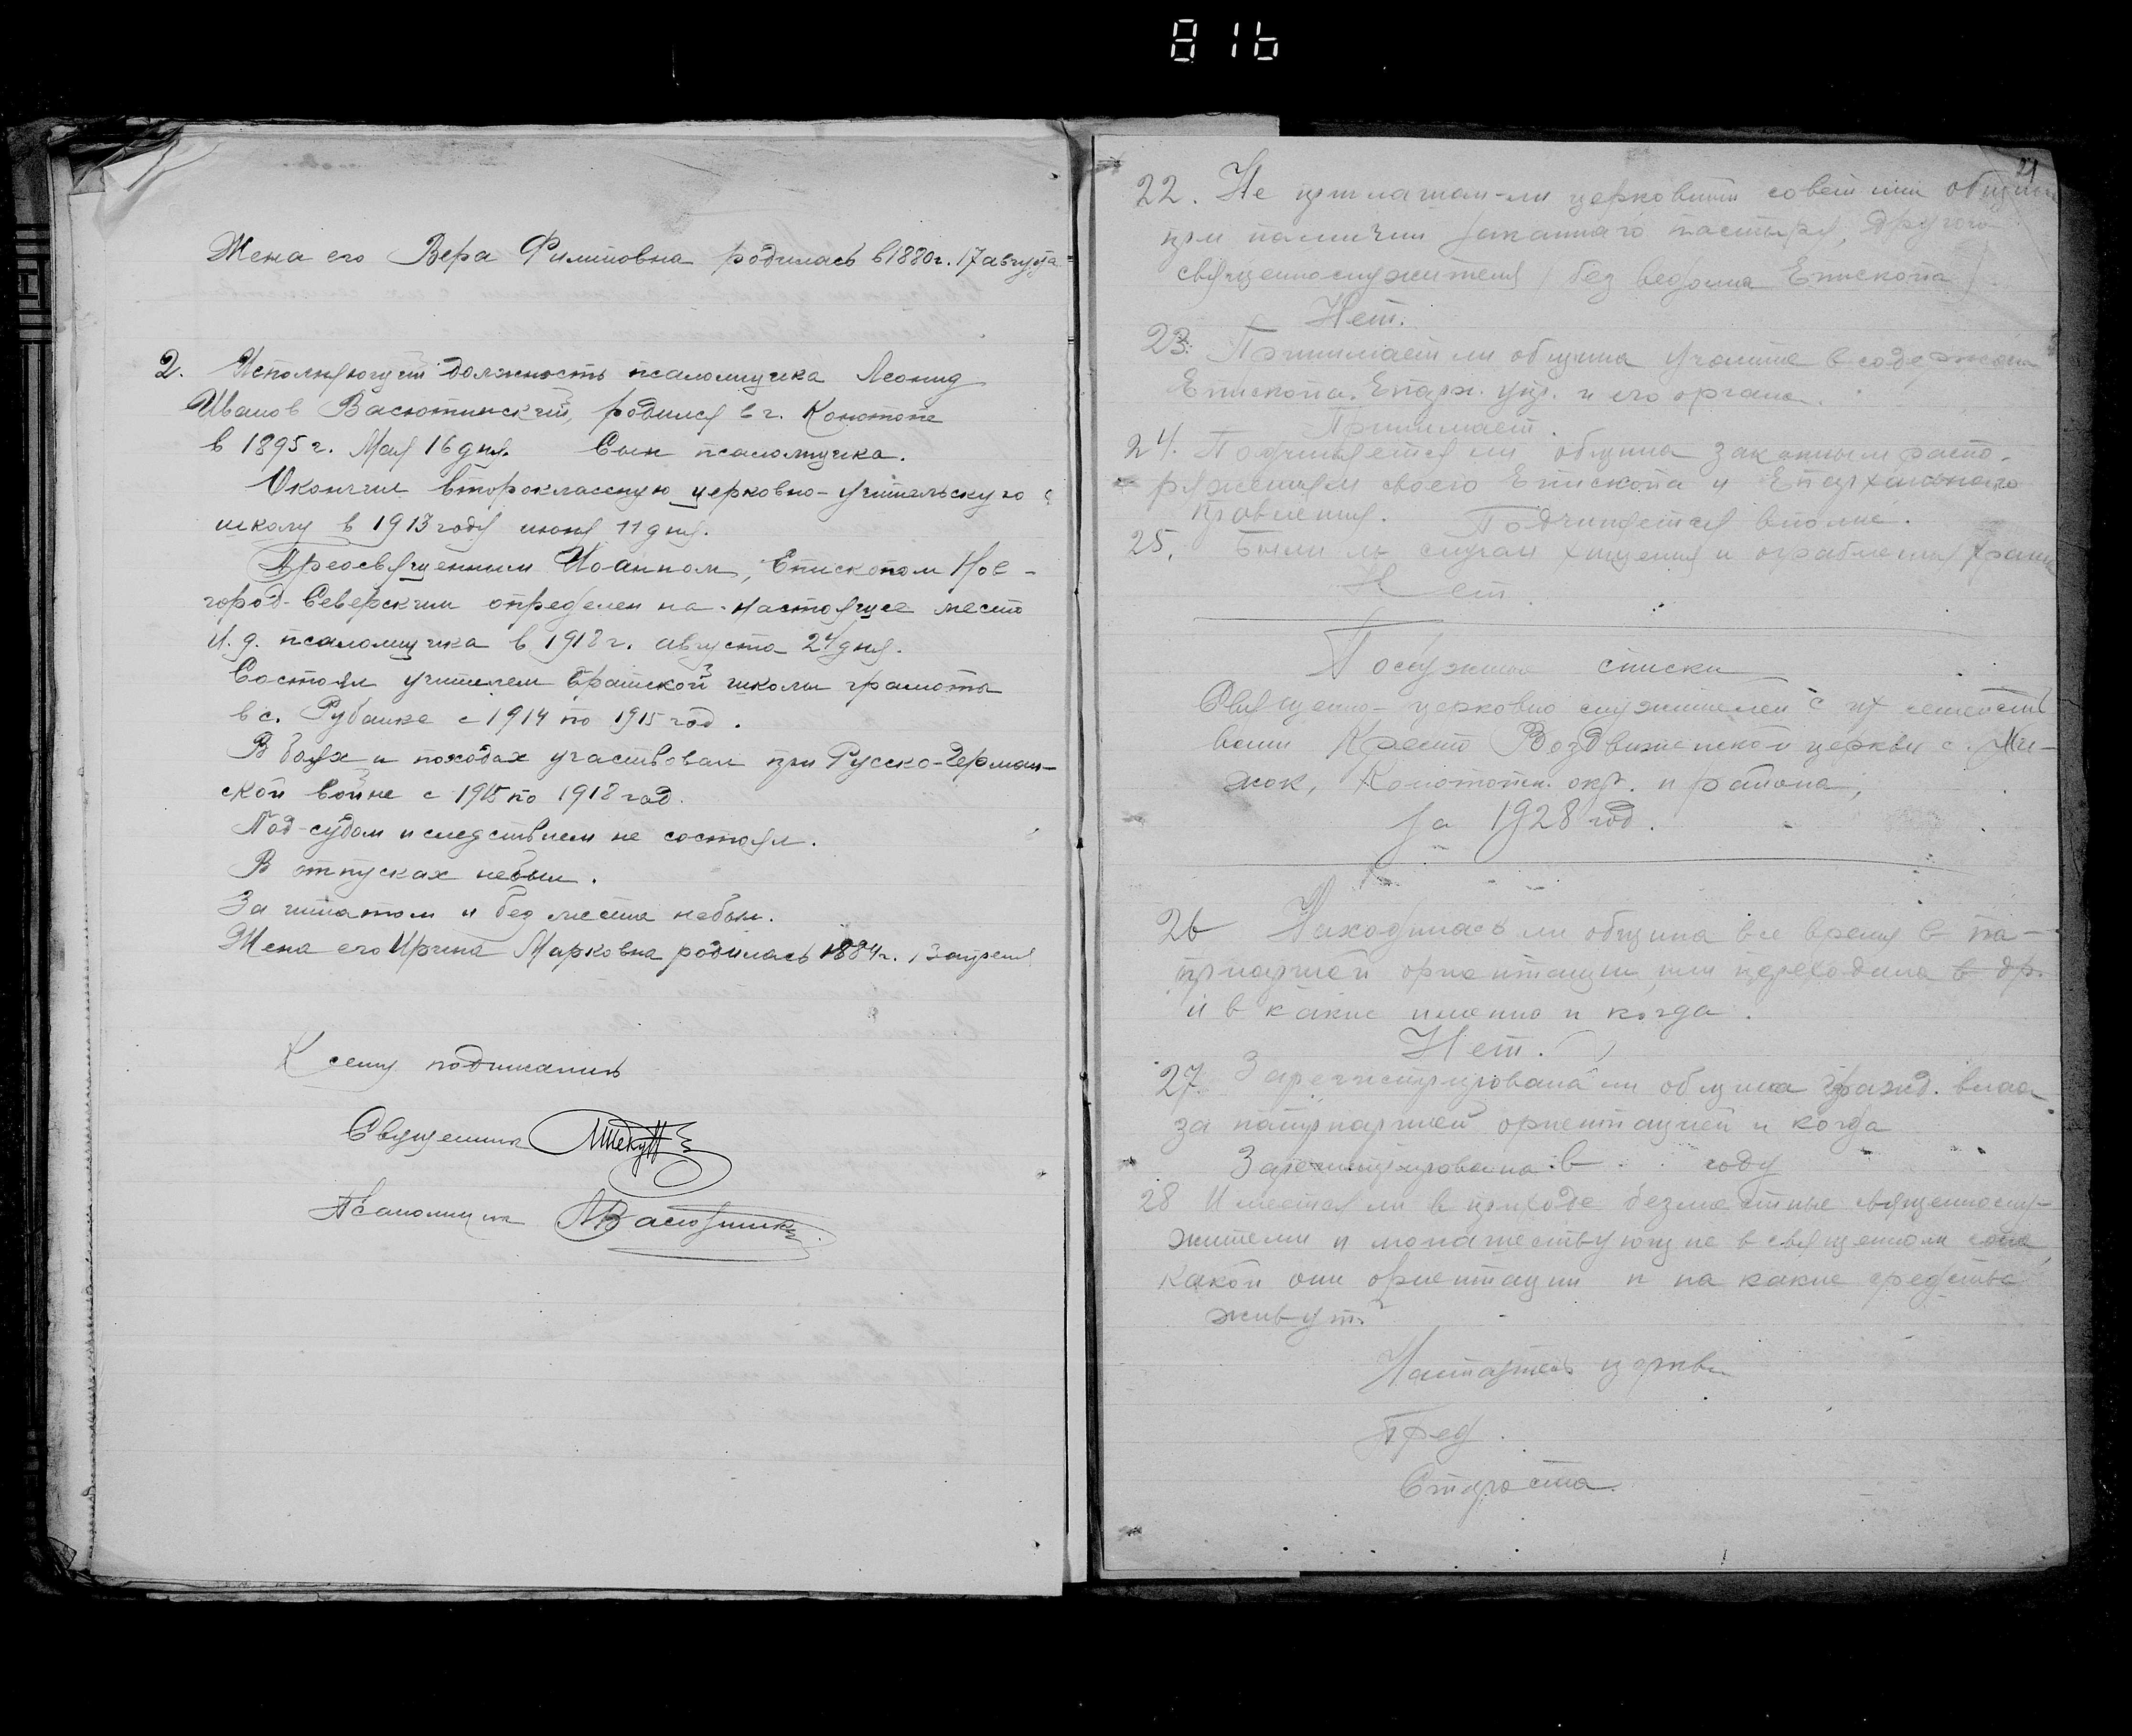 816
Жена его Вера Филиповна родилась в 1880 г. 17 августа
2. Исполняющий должность псаломщика Леонид
Иванов Васютинский, родился в г. Конотопе
в 1895 г. Мая 16 дня. Сын псаломщика.
Окончил второклассную церковно-учительскую
школу в 1913 году июня 11 дня.
Преосвященным Иоанном, Епископом Нов-
город-Северским определен на настоящее место
И. д. псаломщика в 1918 г. августа 24 дня.
Состоял учителем Братской школы грамоты
в с. Рубанке с 1914 по 1915 год.
В боях и походах участвовал при Русско-Герман-
ской войне с 1915 по 1918 год.
Под судом и следствием не состоял.
В отпусках небыл.
За штатом и без места небыл.
Жена его Ирина Марковна родилась 1884 г., 13 апреля
К сему подписались
Священник
Псаломщик Л Васютинский
21
22. Не приглашал-ли церковный совет или община
при наличии законнаго пастыря, другого
священнослужителя (без ведома Епископа)
Нет.
23. Принимает ли община участие в содержании
Епископа. Епарх. упр. и его органа.
Принимает.
24. Подчиняется ли община законным распо-
ряжениям своего Епископа и Епархиального
правления. Подчиняется вполне.
25. Были ли случаи хищения и ограбления храма
Нет.
Послужные списки
Священно-церковно служителей с их семейст
вами Кресто Воздвиженской церкви с. Ми-
жок, Конотопск. окр. и района,
за 1928 год.
26 Находилась ли община все время в па-
триаршей ориентации, или переходила в др.
и в какие именно и когда.
Нет.
27. Зарегистрирована ли община гражд. влас
за патриаршей ориентацией и когда
Зарегистрирована в . . году
28 Имеются ли в приходе безместные священнослу-
жители и монашествующие в священном сане,
какой они ориентации и на какие средства
живут?
Настоятель церкви
Пред.
Староста.